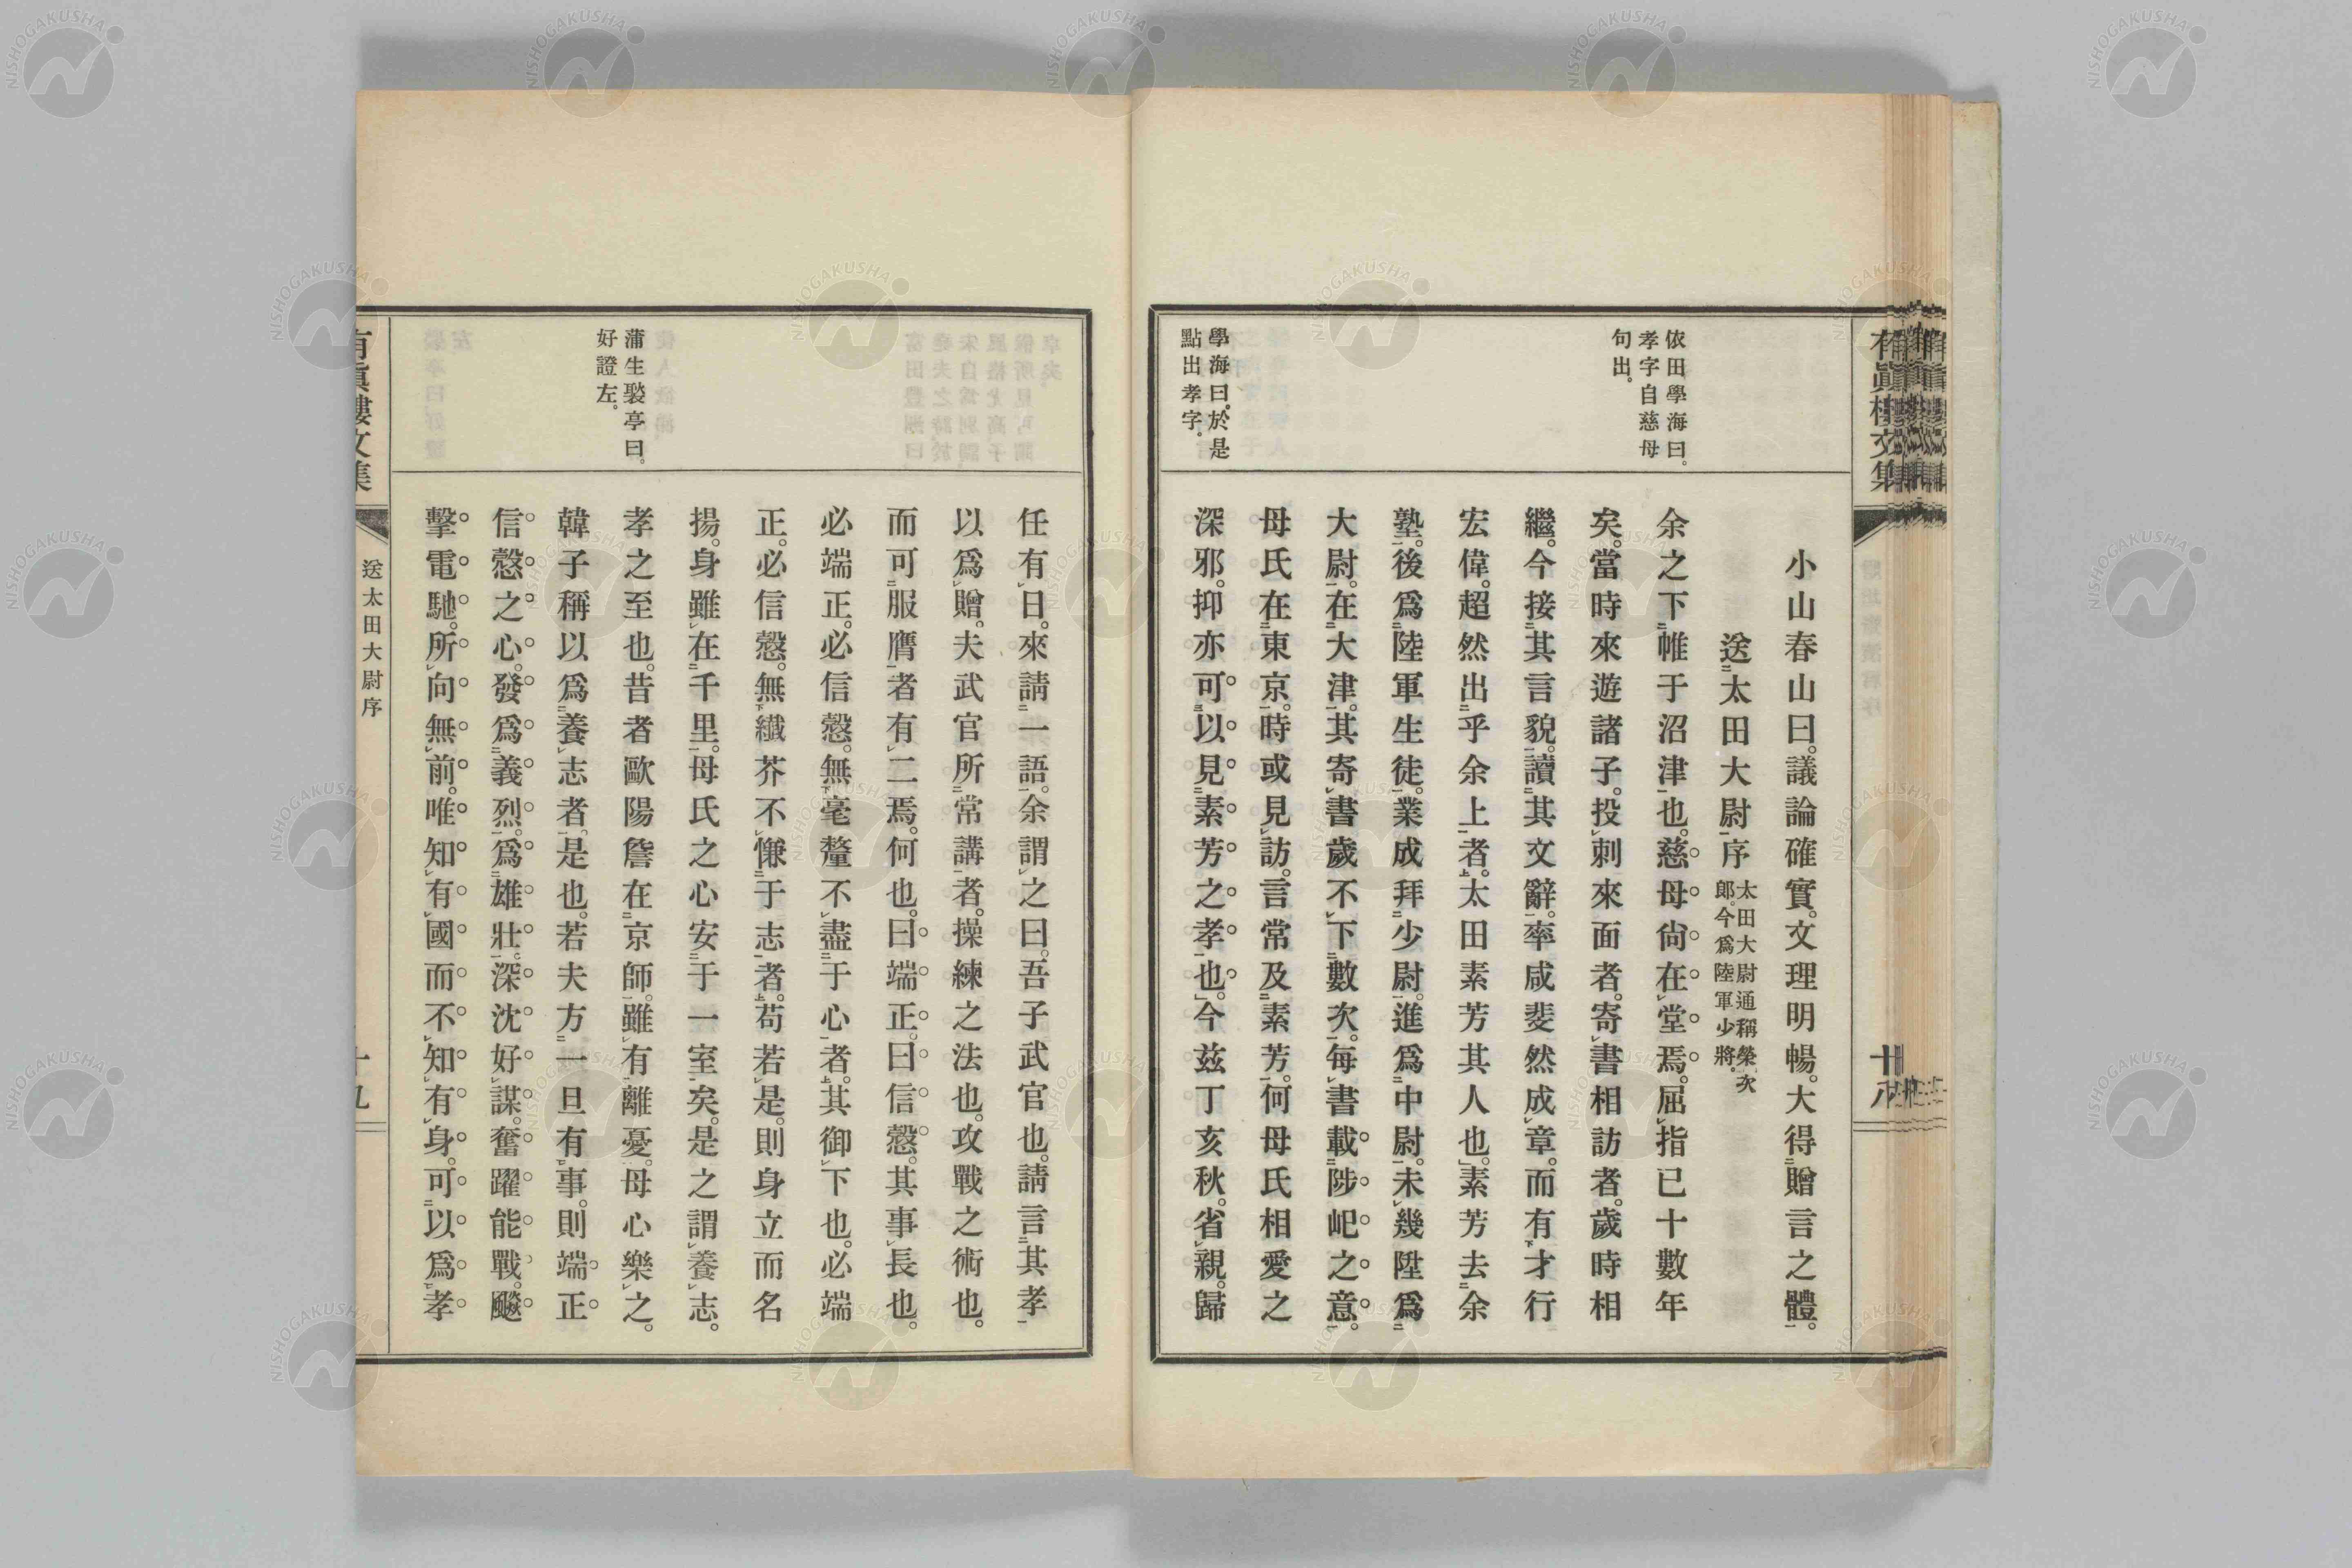 依田學海曰。
孝字自慈母
句出。
學海曰。於是
點出孝字。
小山春山曰。議論確實。文理明暢。大得贈言之體。
送太田大尉序
太田大尉通稱榮次
郎。今爲陸軍少將。
余之下帷于沼津也。慈母尙在堂焉。屈指已十數年
矣。當時來遊諸子。投刺來面者。寄書相訪者。歲時相
繼。今接其言貌。讀其文辭。率咸斐然成章。而有才行
宏偉。超然出乎余上者。太田素芳其人也。素芳去余
塾。後爲陸軍生徒。業成拜少尉。進爲中尉。未幾陞爲
大尉。在大津。其寄書歲不下數次。每書載陟屺之意。
母氏在東京。時或見訪。言常及素芳。何母氏相愛之
深邪。抑亦可以見素芳之孝也。今茲丁亥秋。省親。歸
蒲生褧亭曰。
好證左。
任有日。來請一語。余謂之曰。吾子武官也。請言其孝
以爲贈。夫武官所常講者。操練之法也。攻戰之術也。
而可服膺者有二焉。何也。曰端正。曰信愨。其事長也。
必端正。必信愨。無毫釐不盡于心者。其御下也。必端
正。必信愨。無纎芥不慊于志者。苟若是。則身立而名
揚。身雖在千里。母氏之心安于一室矣。是之謂養志。
孝之至也。昔者歐陽詹在京師。雖有離憂。母心樂之。
韓子稱以爲養志者。是也。若夫方一旦有事。則端正
信愨之心。發爲義烈。爲雄壯。深沈好謀。奮躍能戰。飇
擊電馳。所向無前。唯知有國而不知有身。可以爲孝
送太田大尉序